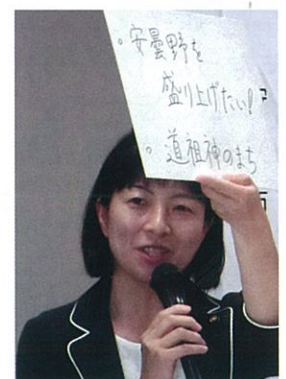 ・安曇野を
盛り上げたい!
・道祖神のまち